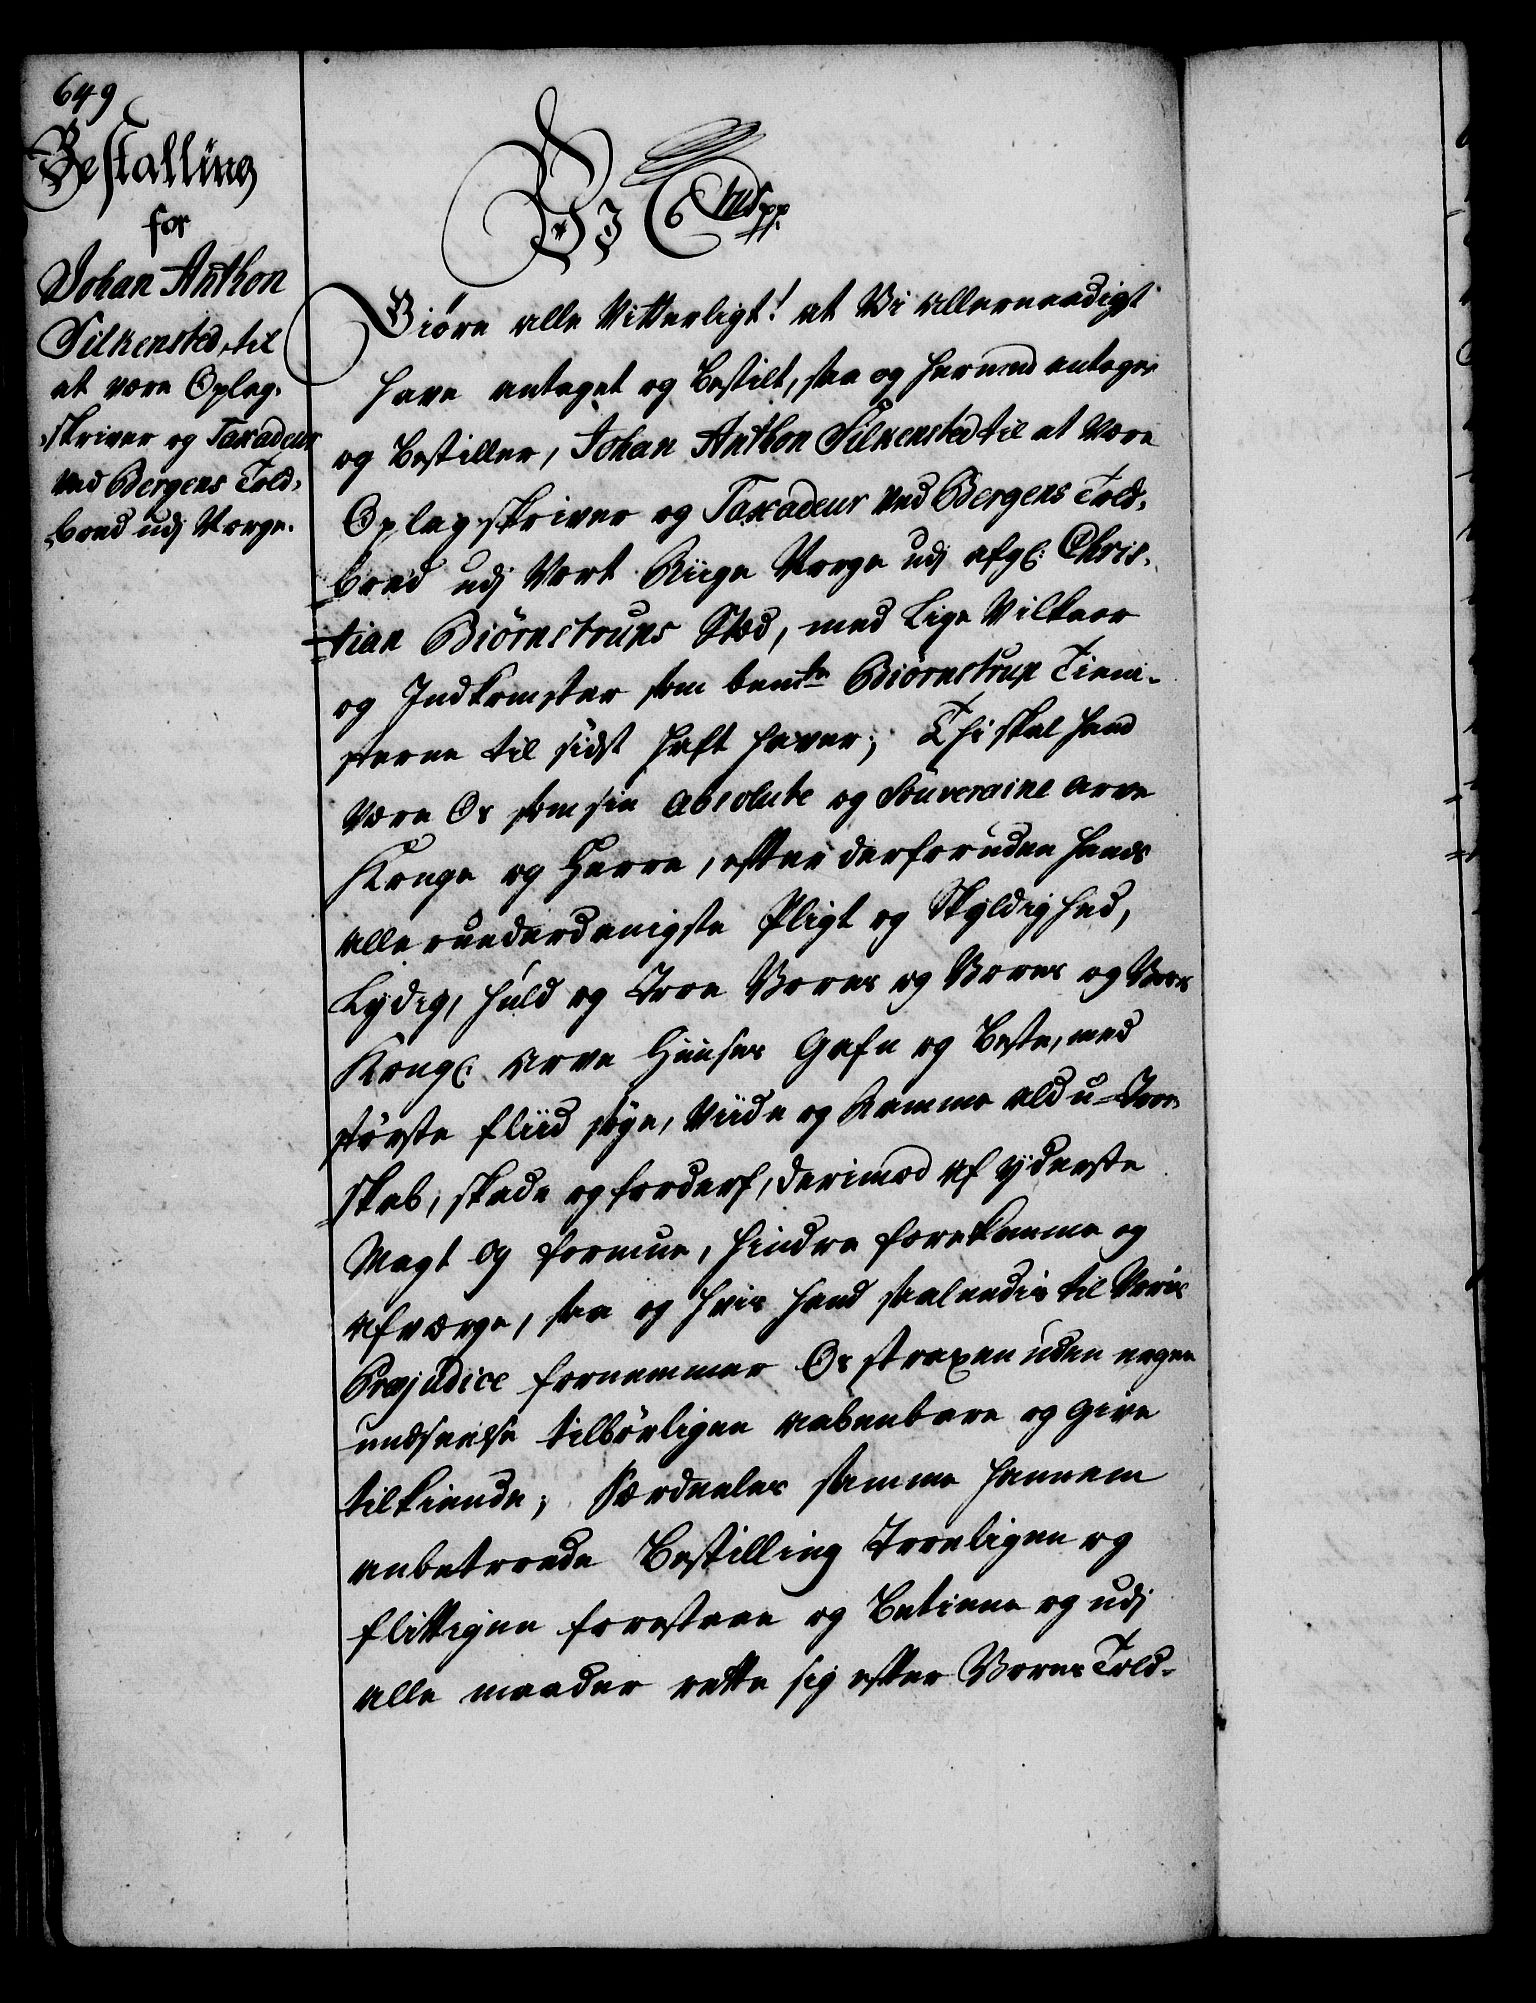 649
Bestalling
for
Johan Anthon
Silkensted, til
at være Oplag-
skriver og Taxadeur
ved Bergens Told-
boed udj Norge.
VI Chr: 6 pp.
Giøre alle Vitterligt! at Vi Allernaadigst
have antaget og bestilt, saa og hermed antager
og bestiller, Johan Anthon Silkensted til at være
Oplagskriver og Taxadeur ved Bergens Told-
boed udj Vort Riige Norge udj afg: Chris-
tian Biørnstrups Stæd, med lige Vilkaar
og Indkomster som bemte Biørnstrup Tieni-
sterne til sidst haft haver; Thi skal hand
være Os som sin absolute og Souveraine arve
Konge og Herre, efter derforuden hands
allerunderdanigste Pligt og Skyldighed,
Lydig, huld og Troe Vores og Vores og Vores
Kongl: arve Huuses Gafn og beste, med
største fliid søge, viide og Ramme ald u-Troe-
skab, skade og forderf, derimod af yderste
Magt og formue, hindre forekomme og
afværge, saa og hvis hand saaleedis til Voris
Præjudice fornemmer Os straxen uden nogen
undseelse tilbørligen aabenbare og give
tilkiende; Særdeeles samme hannem
anbetroede Bestilling Troeligen og
flittigen forestaae og betiene og udj
alle maader rette sig efter Vores Told-